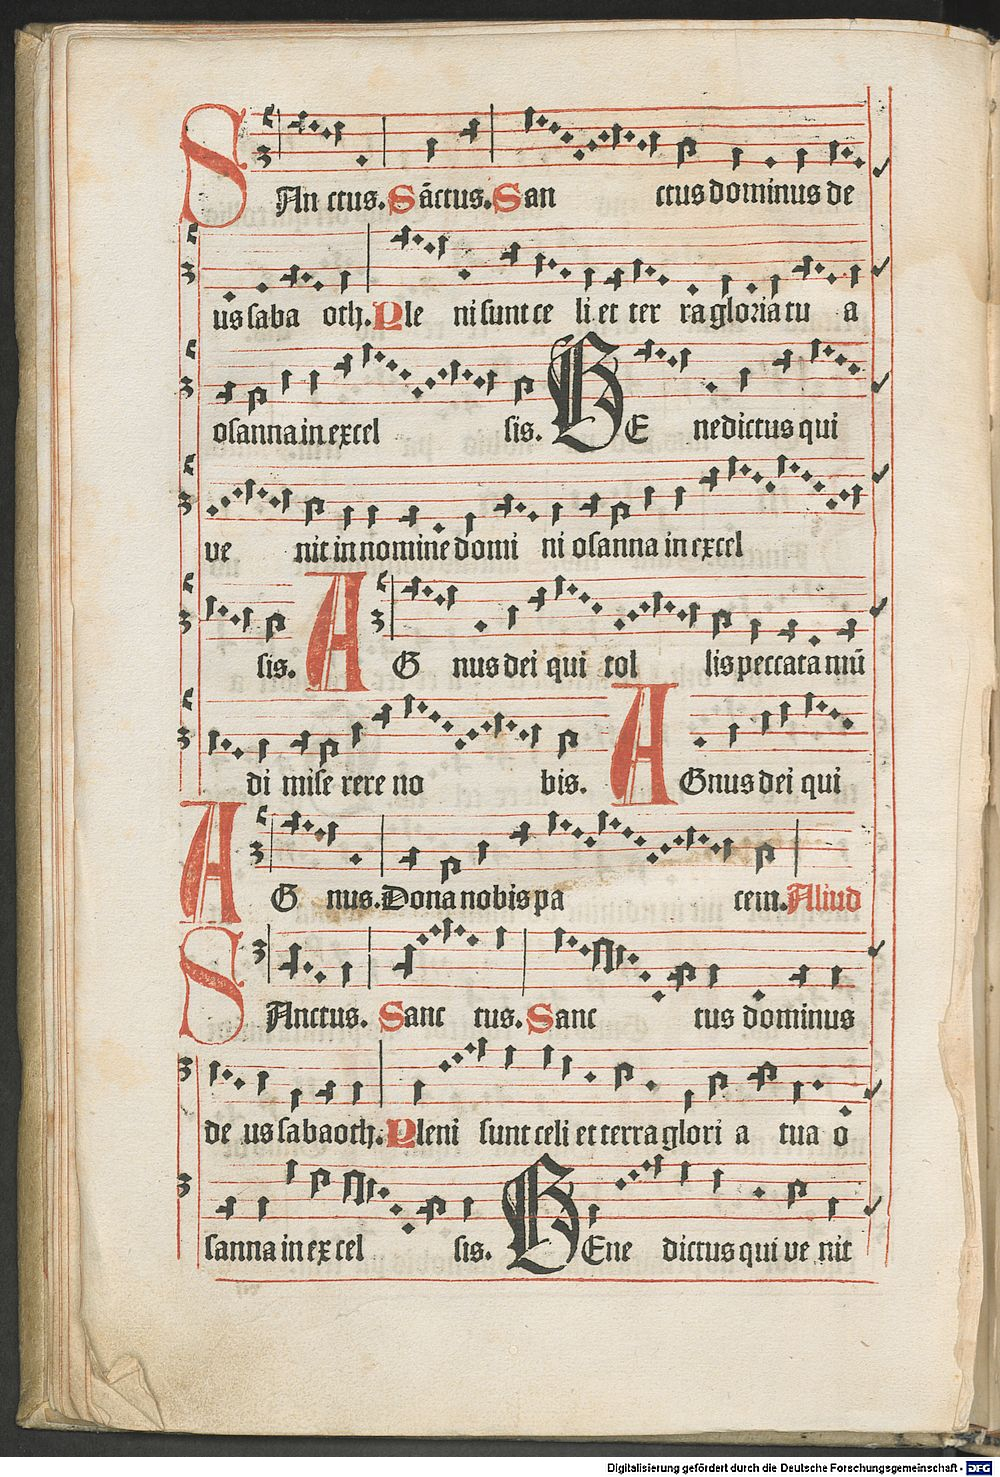 SAn ctus. Sãctus. San ctus dominus de
us saba oth. Ple ni sunt ce li et ter ra gloria tu a
osanna in excel sis. BE nedictus qui
ve nit in nomine domi ni osanna in excel
sis. AG nus dei qui tol lis peccata mũ
di mise rere no bis. AGnus dei qui
AG nus. Dona nobis pa cem. Aliud
SAnctus. Sanc tus. Sanc tus dominus
de us sabaoth. Pleni sunt celi et terra glori a tua o
sanna in excel sis. BEne dictus qui ve nit
Digitalisierung gefördert durch die Deutsche Forschungsgemeinschaft - DFG